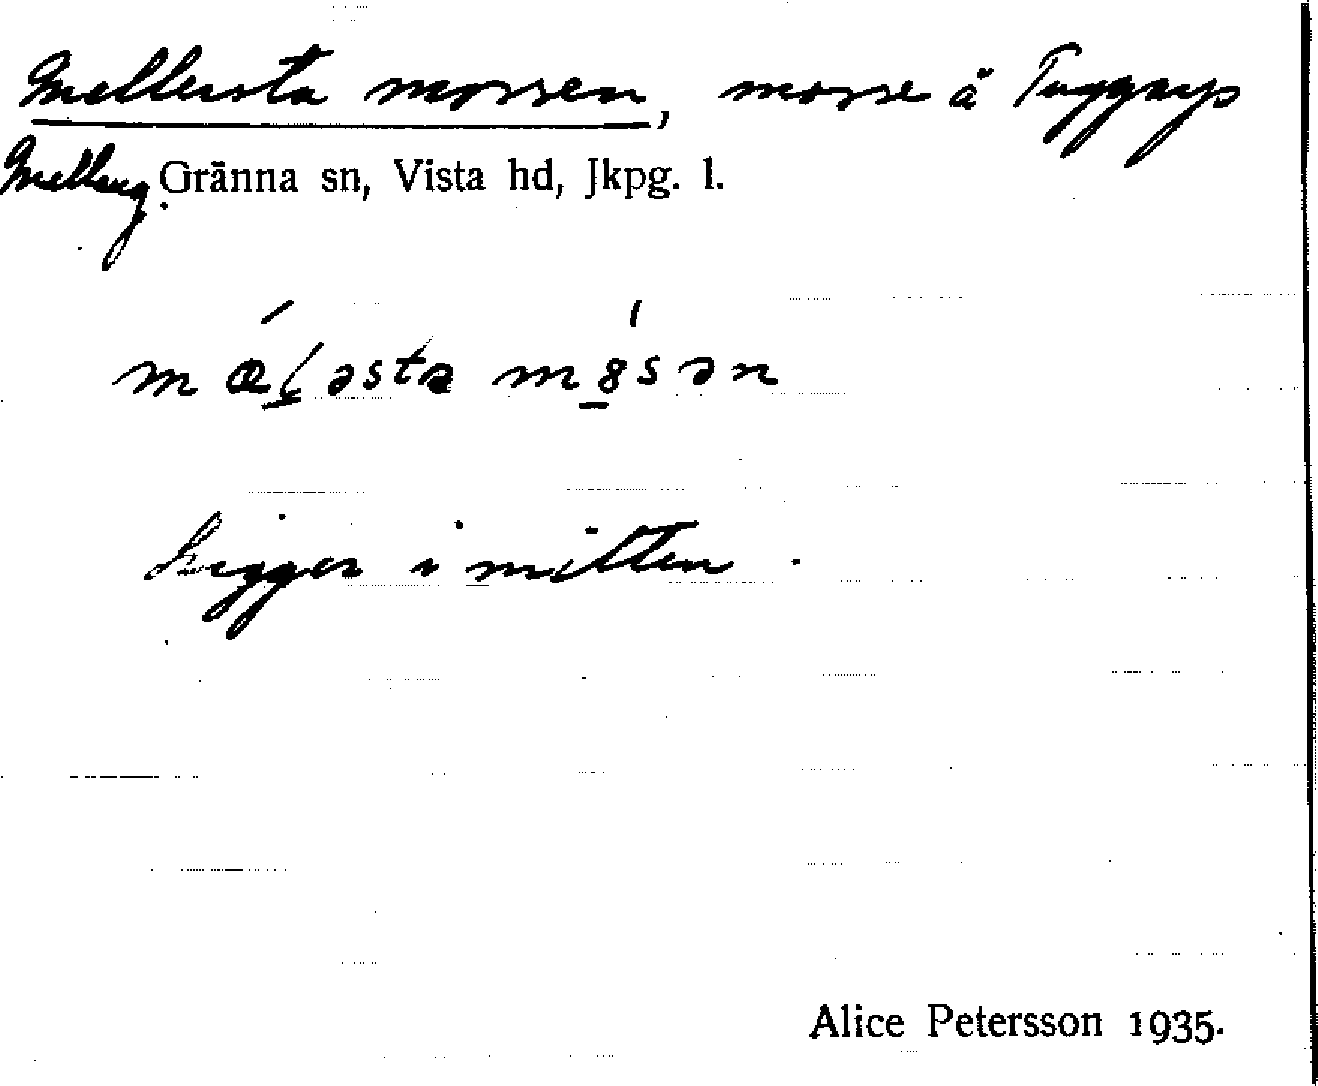 Mellersta mossen, mosse å Tuggarp
Mellang. Gränna sn, Vista hd, Jkpg. l.
mæ̀l̠əsta mo̠sən
Ligger i mitten.
Alice Petersson 1935.